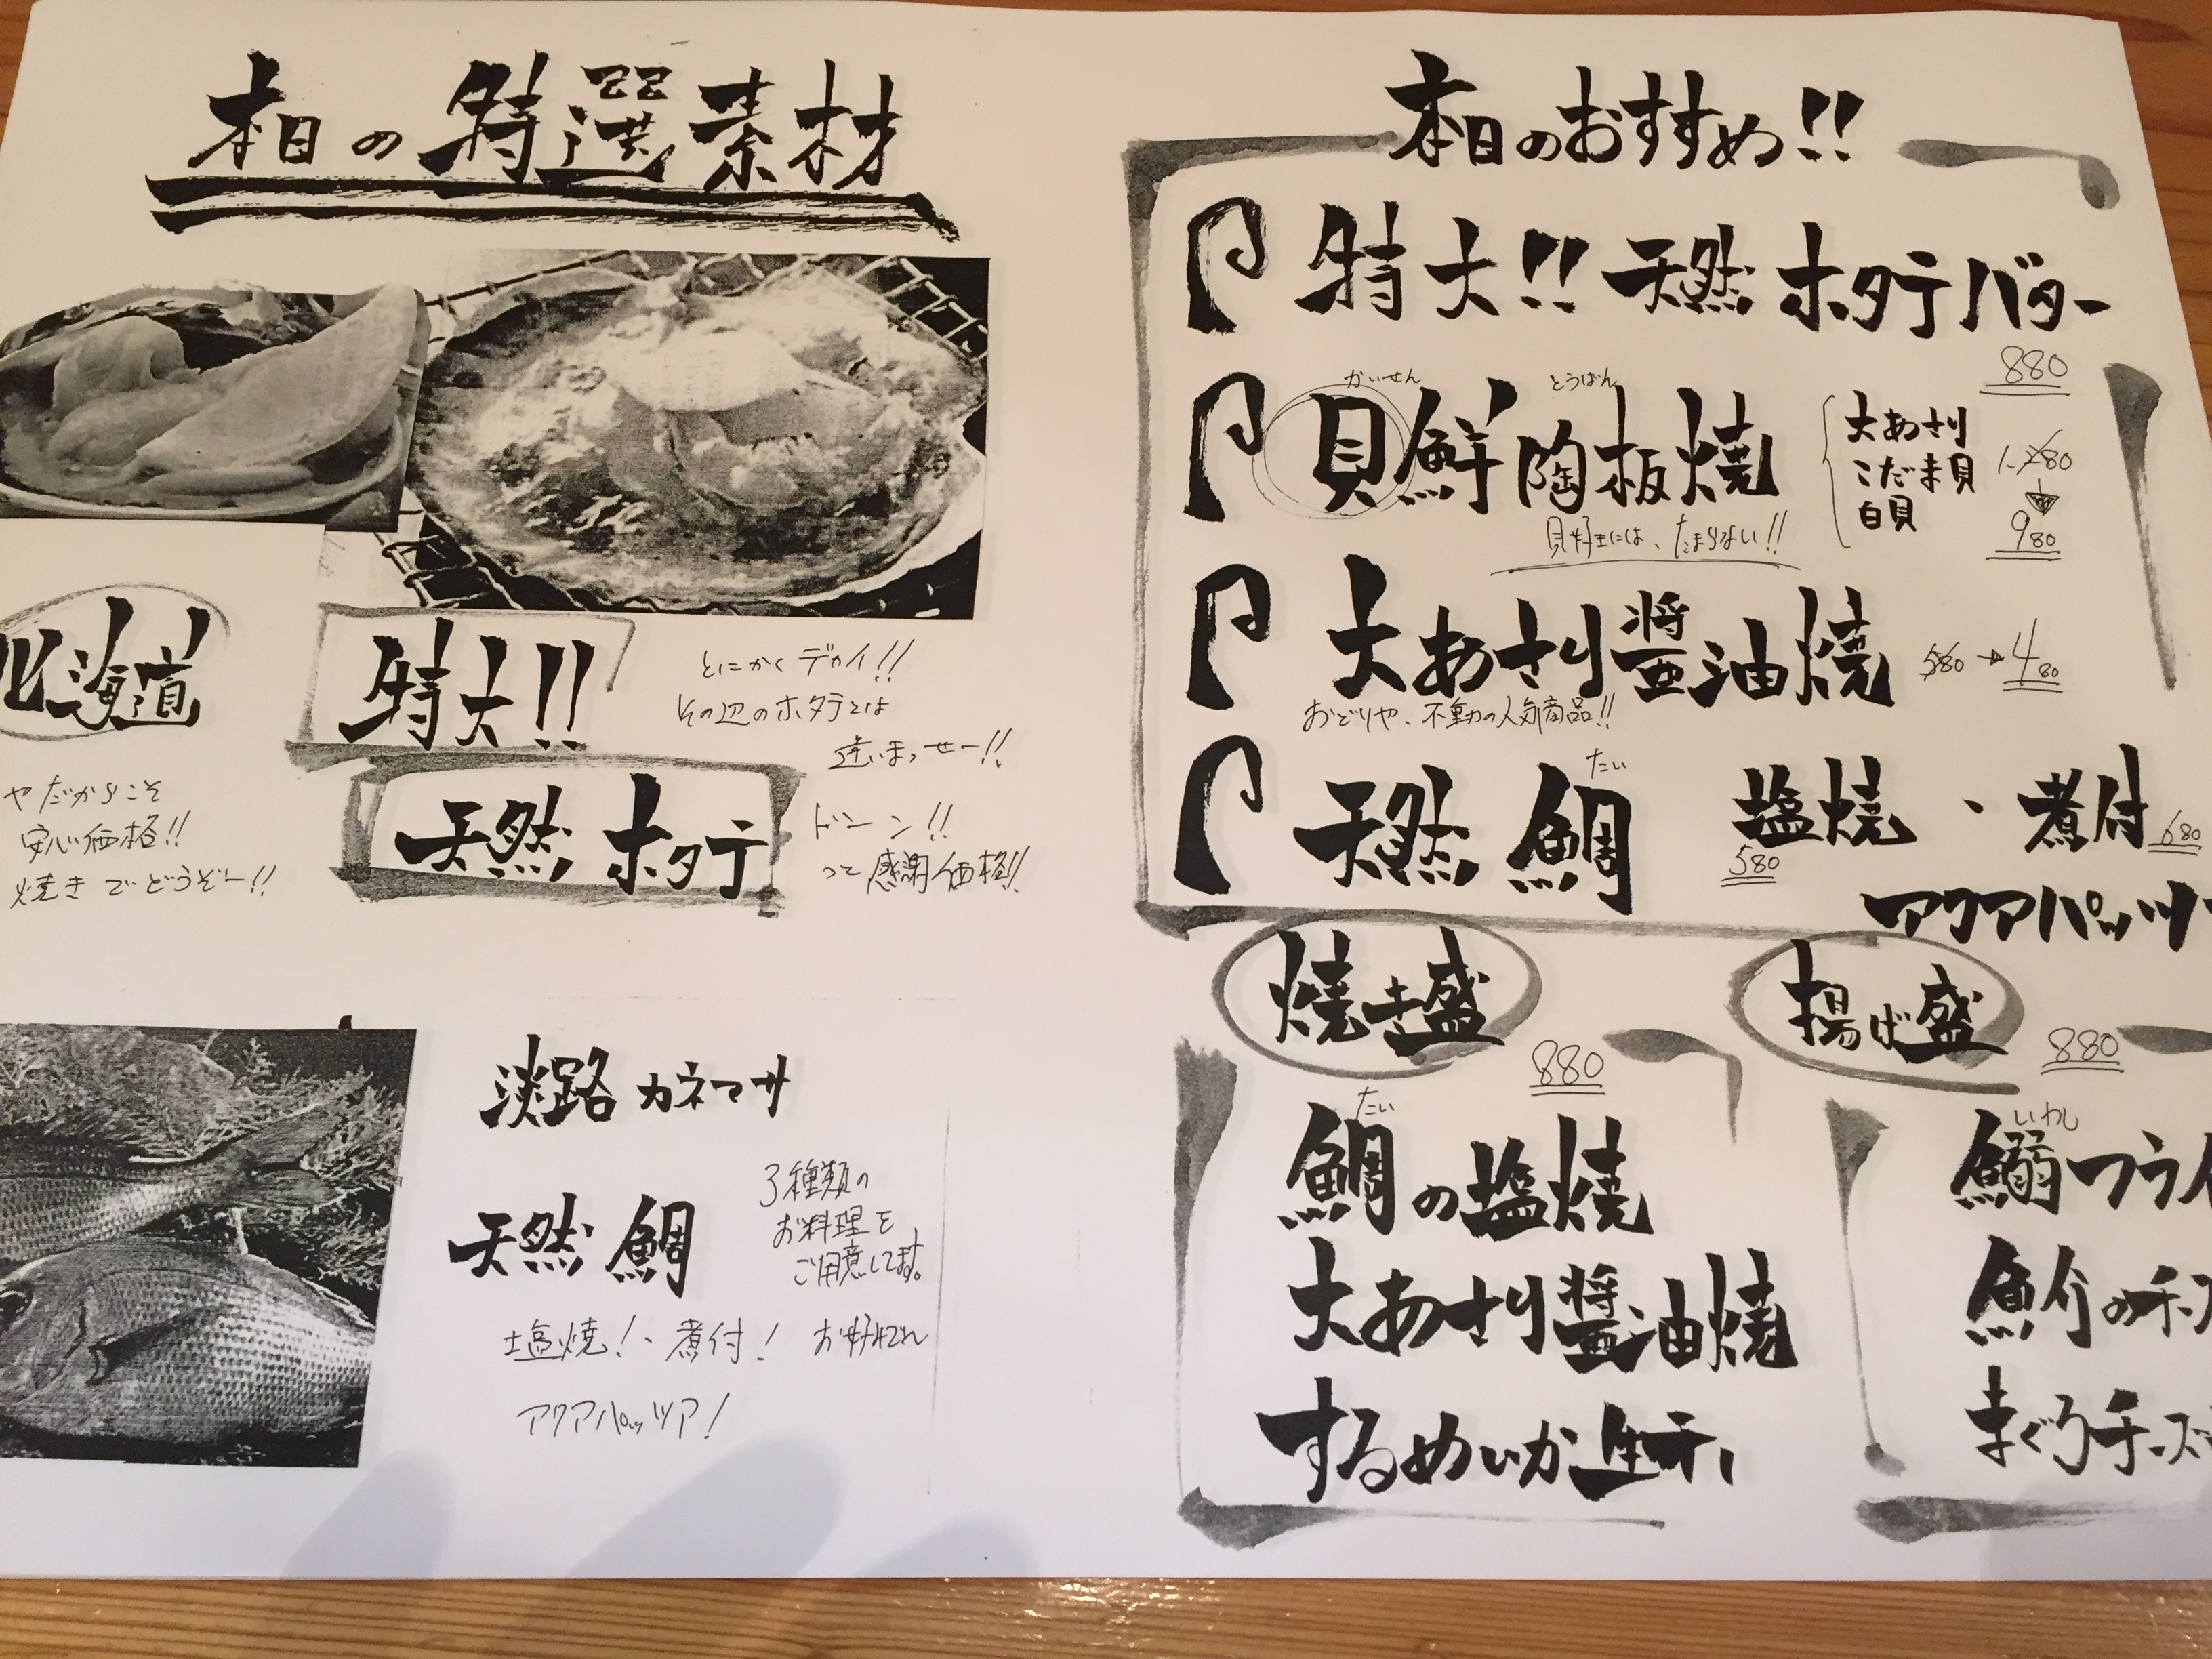 本日の特選素材
北海道
特大!!
天然ホタテ
とにかくデカイ!!
その辺のホタテとは
違いまっせー!!
ドーン!!
って感謝価格!!
やだからこそ
安心価格!!
焼きでどうぞー!!
淡路カネマサ
天然鯛
3種類の
お料理を
ご用意してます。
塩焼!、煮付! お好みでどれ
アクアパッツァ!
本日のおすすめ!!
特大!!天然ホタテバター
880
かいせん とうばん
貝鮮陶板焼
大あさり
こだま貝
白貝
1.280
980
貝好きには、たまらない!!
大あさり醤油焼 580→480
おどりや、不動の人気商品!!
たい
天然鯛 塩焼・煮付
580
680
アクアパッツ
焼き盛
880
たい
鯛の塩焼
大あさり醤油焼
するめいか生干し
揚げ盛
880
いわし
鰯フライ
まぐろチーズ